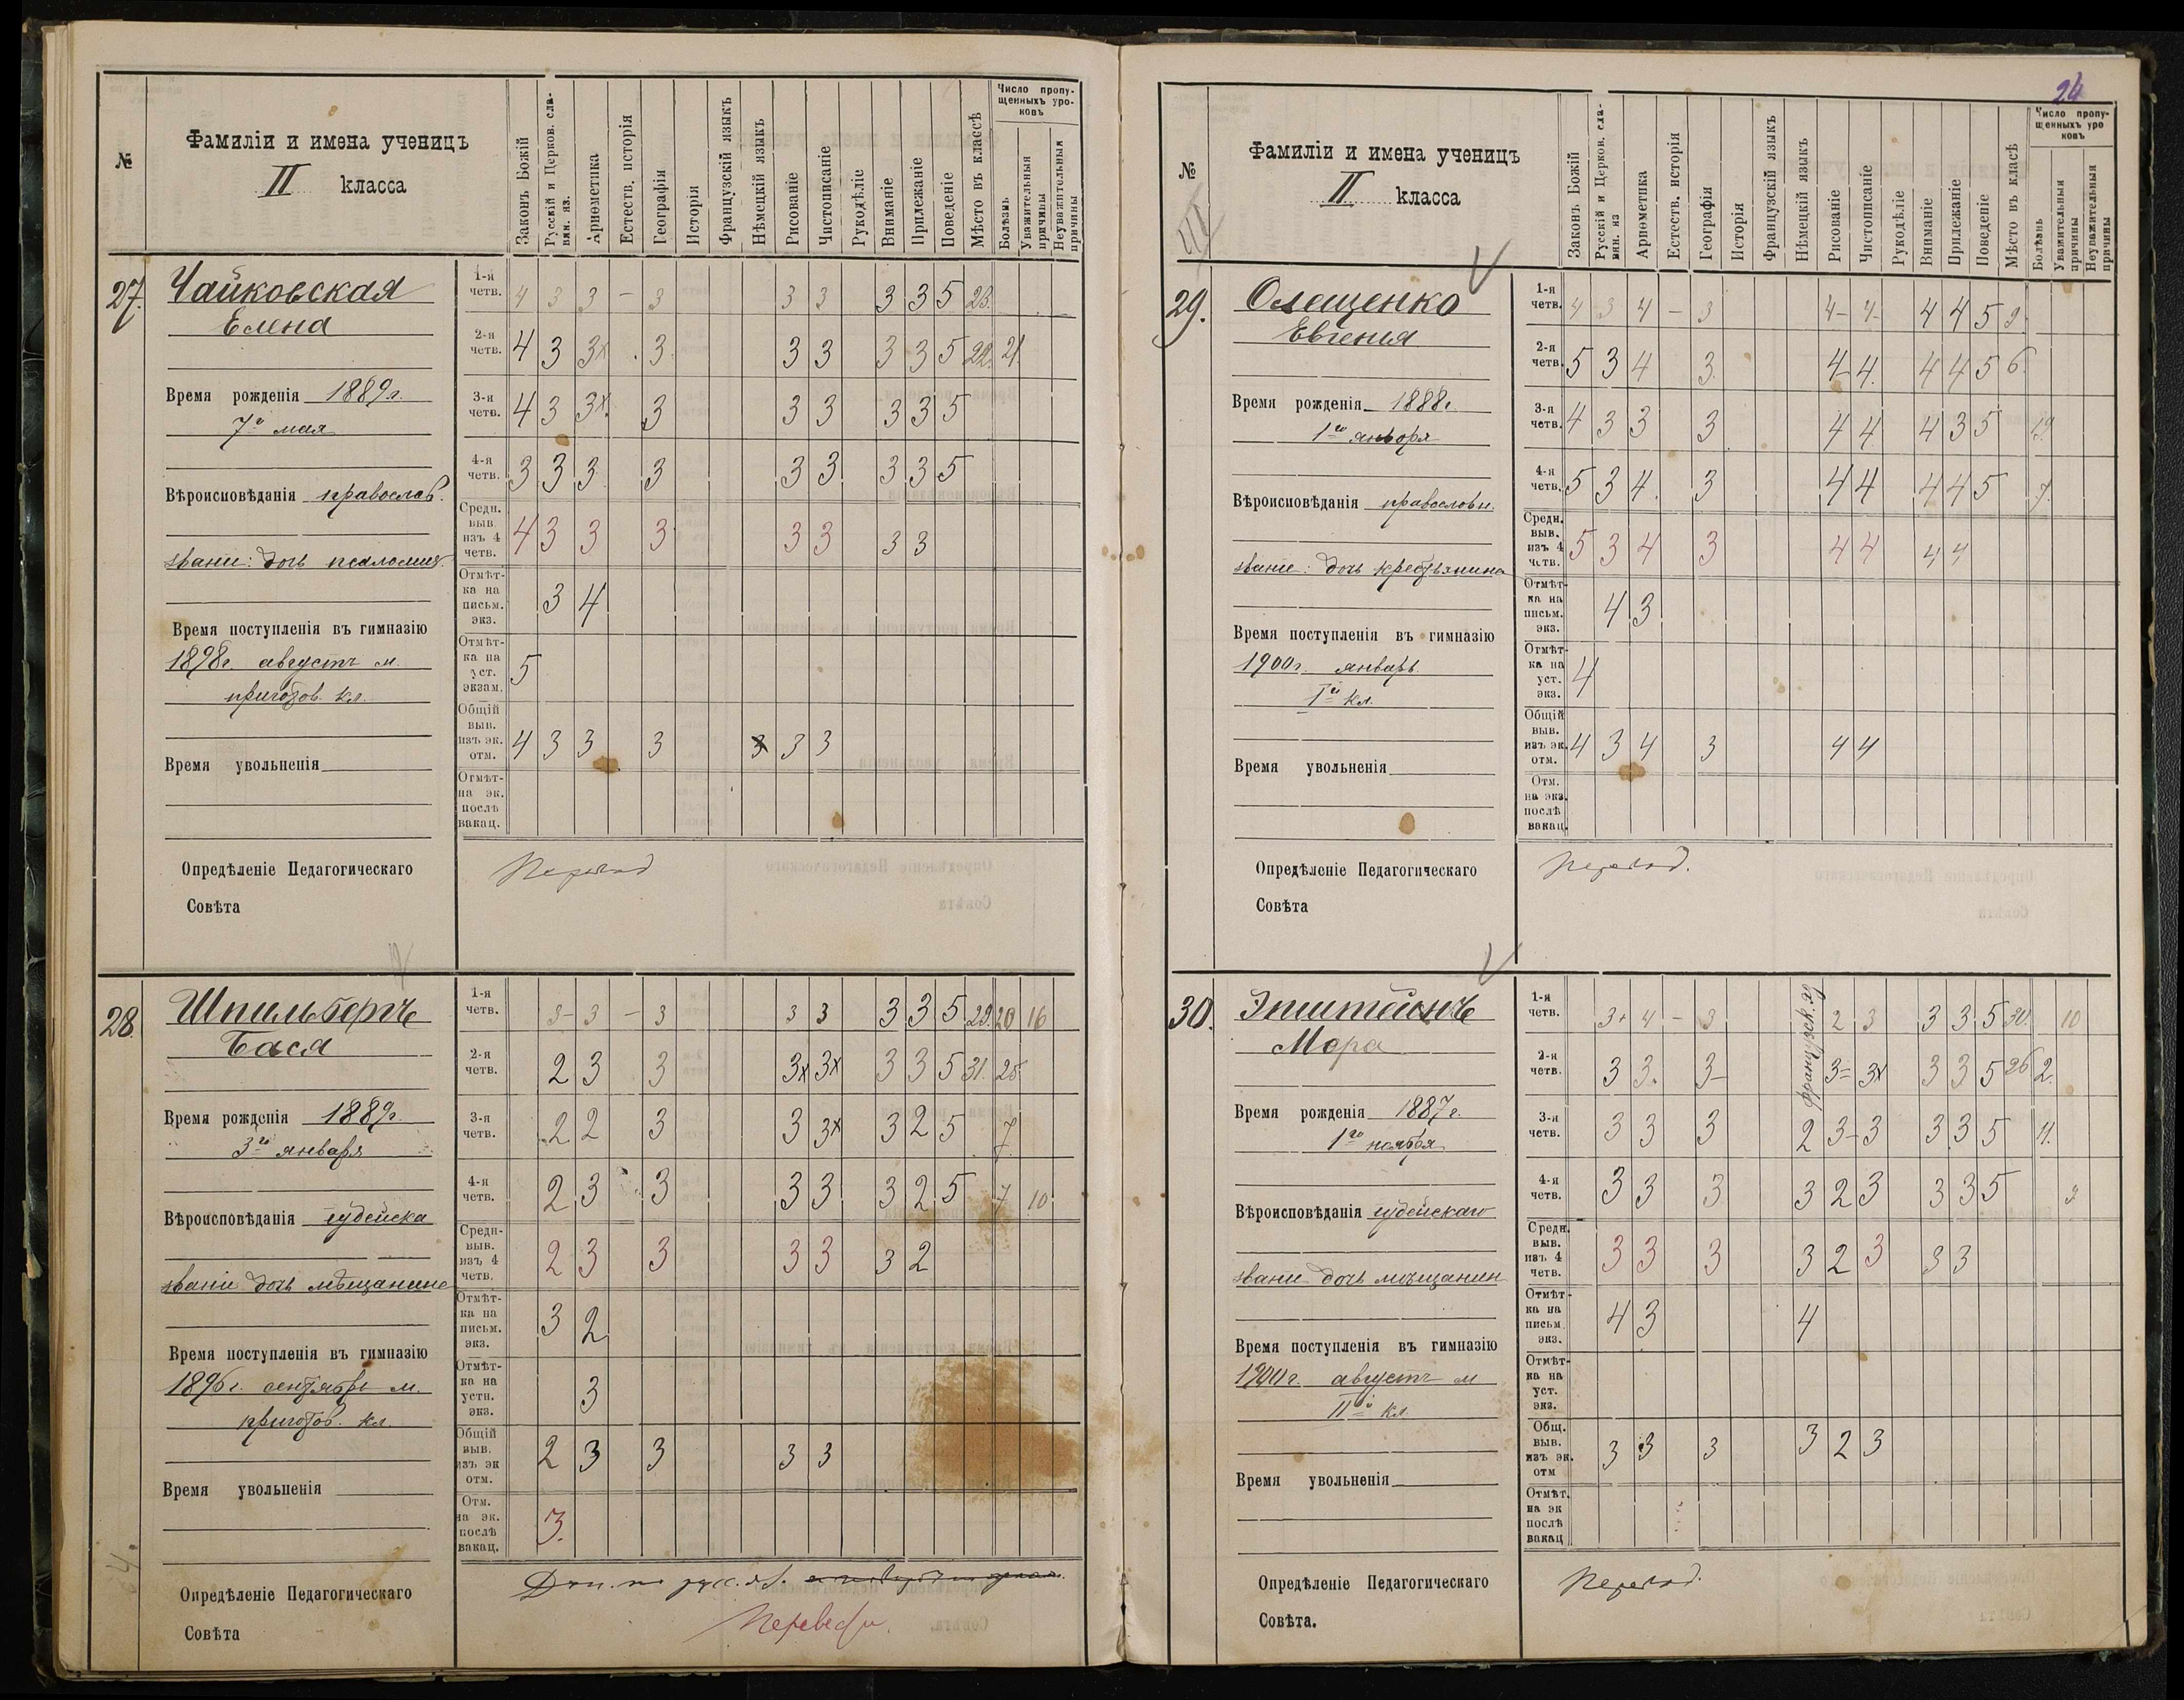 №
Фамиліи и имена ученицъ
II класса
Законъ Божій
Русскій и Церков. сла-
вян. яз.
Ариѳметика
Естеств. исторія
Географія
Исторія
Французскій языкъ
Нѣмецкій языкъ
Рисованіе
Чистописаніе
Рукодѣліе
Вниманіе
Прилежаніе
Поведеніе
Мѣсто въ классѣ
Число пропу-
щенныхъ уро-
ковъ
Болѣзнь
Уважительныя
причины
Неуважительныя
причины
27.
Чайковская
Елена
Время рожденія 1889г.
7го мая
Вѣроисповѣданія православ.
званіе: дочь псаломщ.
Время поступленія въ гимназію
1898г августъ м.
приготов. кл.
Время увольненія
1-я четв. 4 3 3 – 3 3 3 3 3 5 23.
2-я четв. 4 3 3х 3 3 3 3 3 5 22. 21
3-я четв. 4 3 3х 3 3 3 3 3 5
4-я четв. 3 3 3 3 3 3 3 3 5
Средн. выв. изъ 4 четв. 4 3 3 3 3 3 3 3
Отмѣт-ка на письм. экз. 3 4
Отмѣт-ка на уст. экзам. 5
Общій выв. изъ эк. отм. 4 3 3 3 3 3 3
Отмѣт- на эк. послѣ вакац.
Опредѣленіе Педагогическаго
Совѣта
Перевод
28.
Шпильбергъ
Бася
Время рожденія 1889г.
3го января
Вѣроисповѣданія іудейска
званіе дочь мѣщанина
Время поступленія въ гимназію
1896г. сентябрь м.
приготов. кл.
Время увольненія
1-я четв. 3– 3 – 3 3 3 3 3 5 29. 20 16
2-я четв. 2 3 3 3х 3х 3 3 5 31. 25
3-я четв. 2 2 3 3 3х 3 2 5 7
4-я четв. 2 3 3 3 3 3 2 5 7 10
Средн- выв. изъ 4 четв. 2 3 3 3 3 3 2
Отмѣт-ка на письм. экз. 3 2
Отмѣт-ка на устн. экз. 3
Общій выв. изъ эк отм. 2 3 3 3 3
Отм. на эк. послѣ вакац. 3.
Опредѣленіе Педагогическаго
Совѣта
Доп. по русс. яз.
Перевести.
24
№
Фамиліи и имена ученицъ
II класса
Законъ Божій
Русскій и Церков. сла-
вян. яз
Ариѳметика
Естеств. исторія
Географія
Исторія
Французскій языкъ
Нѣмецкій языкъ
Рисованіе
Чистописаніе
Рукодѣліе
Вниманіе
Прилежаніе
Поведеніе
Мѣсто въ класѣ
Число пропу-
щенныхъ уро
ковъ
Болѣзнь
Уважительныя
причины
Неуважительныя
причины
29.
Олещенко
Евгенія
Время рожденія 1888г.
1го января
Вѣроисповѣданія православн.
званіе: дочь крестьянина
Время поступленія въ гимназію
1900г. январь
Iй кл.
Время увольненія
1-я четв. 4 3 4 – 3 4– 4– 4 4 5 9.
2-я четв. 5 3 4 3. 4– 4. 4 4 5 6.
3-я четв. 4 3 3 3 4 4 4 3 5 19.
4-я четв. 5 3 4. 3 4 4 4 4 5 7.
Средн. выв. изъ 4 четв. 5 3 4 3 4 4 4 4
Отмѣт-ка на письм. экз. 4 3
Отмѣт-ка на уст. экз. 4
Общій выв. изъ эк. отм. 4 3 4 3 4 4
Отм. на экз. послѣ вакац.
Опредѣленіе Педагогическаго
Совѣта
Перевод.
30.
Эпштейнъ
Мера
Время рожденія 1887г.
1го ноября
Вѣроисповѣданія іудейскаго
званіе дочь мѣщанин
Время поступленія въ гимназію
1900г. августъ м
IIй кл
Время увольненія
Французск. яз.
1-я четв. 3+ 4 – 3 2 3 3 3 5 30. 10
2-я четв. 3 3. 3– 3= 3х 3 3 5 26 2.
3-я четв. 3 3 3 2 3– 3 3 3 5 11.
4-я четв. 3 3 3 3 2 3 3 3 5 2
Средн. выв. изъ 4 четв. 3 3 3 3 2 3 3 3
Отмѣт-ка на письм. экз. 4 3 4
Отмѣт-ка на уст. экз.
Общ. выв. изъ эк. отм 3 3 3 3 2 3
Отмѣт. на эк послѣ вакац
Опредѣленіе Педагогическаго
Совѣта.
Перевод.